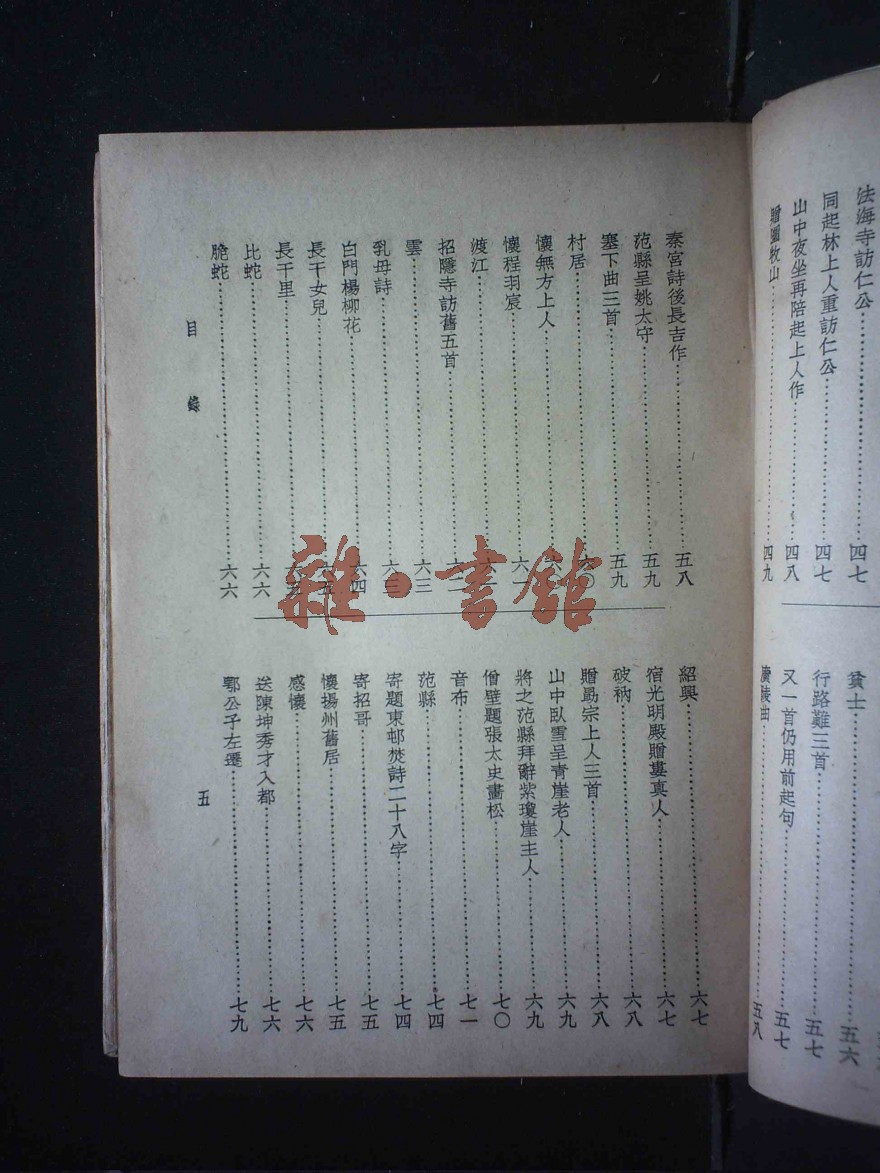 法海寺訪仁公……四七
同起林上人重訪仁公……四七
山中夜坐再陪起上人作……四八
贈圖牧山……四九
貧士……五六
行路難三首……五七
又一首仍用前起句……五七
廣陵曲……五八
秦宮詩後長吉作……五八
范縣呈姚太守……五九
塞下曲三首……五九
村居……六〇
懷無方上人……六
懷程羽宸……六一
渡江……六
招隱寺訪舊五首……六二
雲……六三
乳母詩……六三
白門楊柳花……六四
長干女兒……六五
長干里……
比蛇……六六
脆蛇……六六
紹興……六七
宿光明殿贈婁真人……六七
破衲……六八
贈勗宗上人三首……六八
山中臥雪呈青崖老人……六九
將之范縣拜辭紫瓊崖主人……六九
僧壁題張太史畫松……七〇
音布……七一
范縣……七四
寄題東邨焚詩二十八字……七四
寄招哥……七五
懷揚州舊居……七五
感懷……七六
送陳坤秀才入都……七六
鄂公子左遷……七九
目錄
五
雜·書館